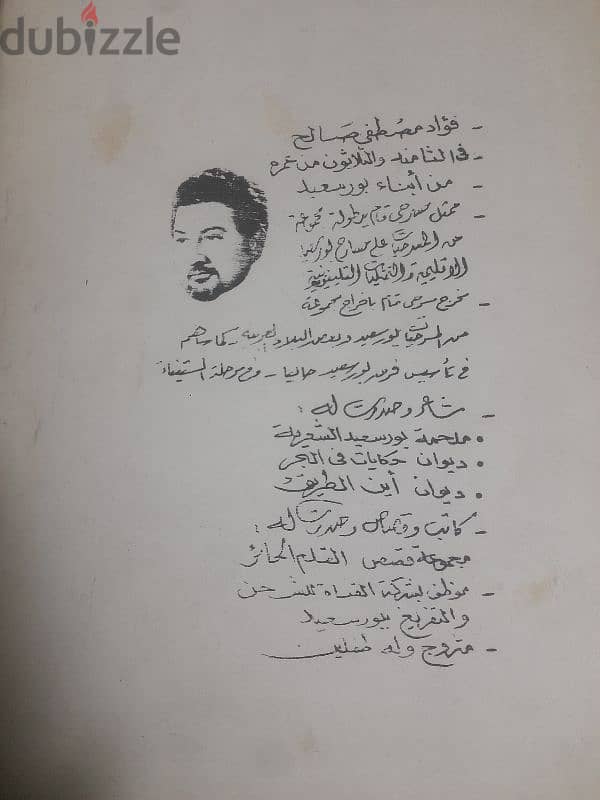 dubizzle
- فؤاد مصطفى صالح
- فى الثامنة والثلاثون من عمره
- من أبناء بورسعيد
- ممثل مسرحى قام ببطولة مجموعة
من المسرحيات على مسارح بورسعيد
الاقليمية والتمثيليات التليفزيونية
- مخرج مسرحى قام باخراج مجموعة
من المسرحيات ببورسعيد وبعض البلاد العربية - كما ساهم
فى تأسيس فرق بورسعيد حاليا - وفى مرحلة
- شاعر وصدرت له :
• ملحمة بورسعيد الشعرية
• ديوان حكايات فى الهجر
• ديوان أين الطريق
- كاتب وقصاص وصدرت له :
مجموعة قصص القلم الحائر
- موظف بشركة القناة للشحن
والتفريغ ببورسعيد
- متزوج وله طفلين